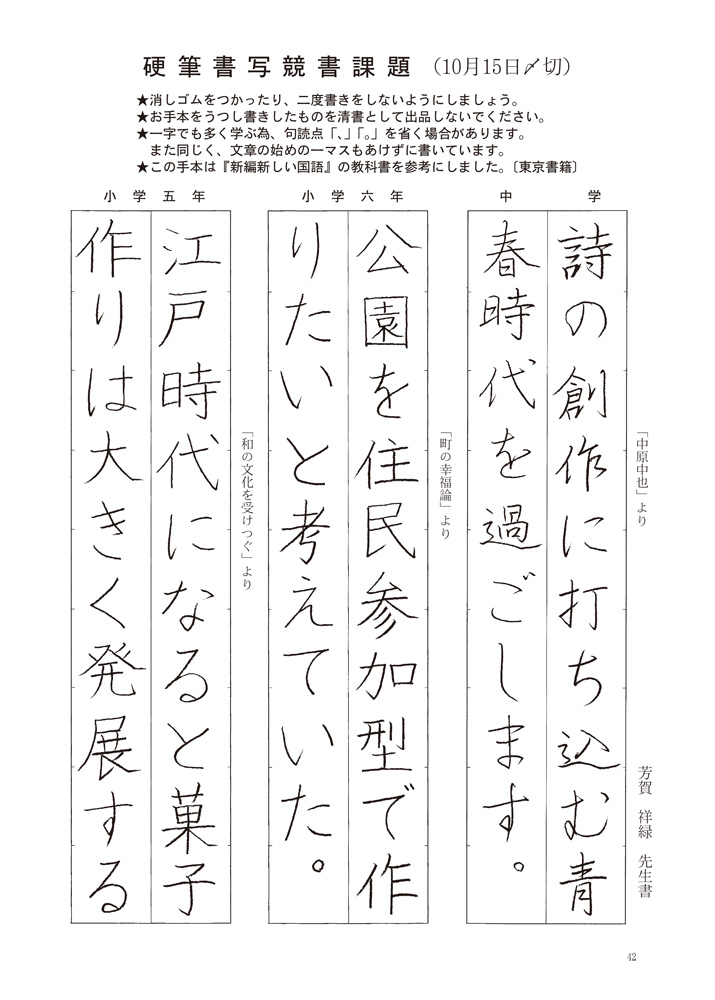 硬筆書写競書課題（10月15日〆切）
★消しゴムをつかったり、二度書きをしないようにしましょう。
★お手本をうつし書きしたものを清書として出品しないでください。
★一字でも多く学ぶ為、句読点「、」「。」を省く場合があります。
また同じく、文章の始めの一マスもあけずに書いています。
★この手本は『新編新しい国語』の教科書を参考にしました。〔東京書籍〕
中学
「中原中也」より
芳賀 祥緑 先生書
詩の創作に打ち込む青
春時代を過ごします。
小学六年
「町の幸福論」より
公園を住民参加型で作
りたいと考えていた。
小学五年
「和の文化を受けつぐ」より
江戸時代になると菓子
作りは大きく発展する
42